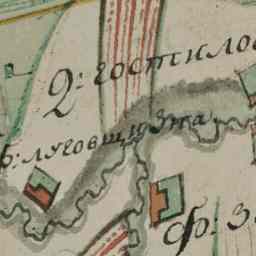 2: гостило
ф: луговщизта
ф: з